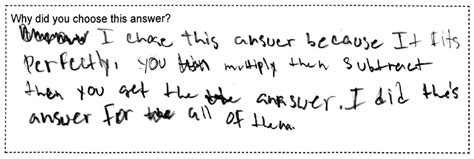 Why did you choose this answer?
I chose this answer because It fits
perfectly, you multiply then subtract
then you get the answer. I did this
answer for all of them.